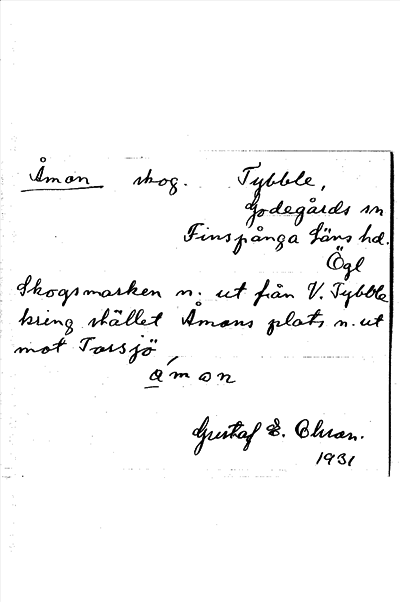 Åman skog. Tybble,
Godegårds sn
Finspånga läns hd.
Ögl
Skogsmarken n. ut från V. Tybble
kring stället Åmans plats n. ut
mot Torsjö
Gustaf E.
1931